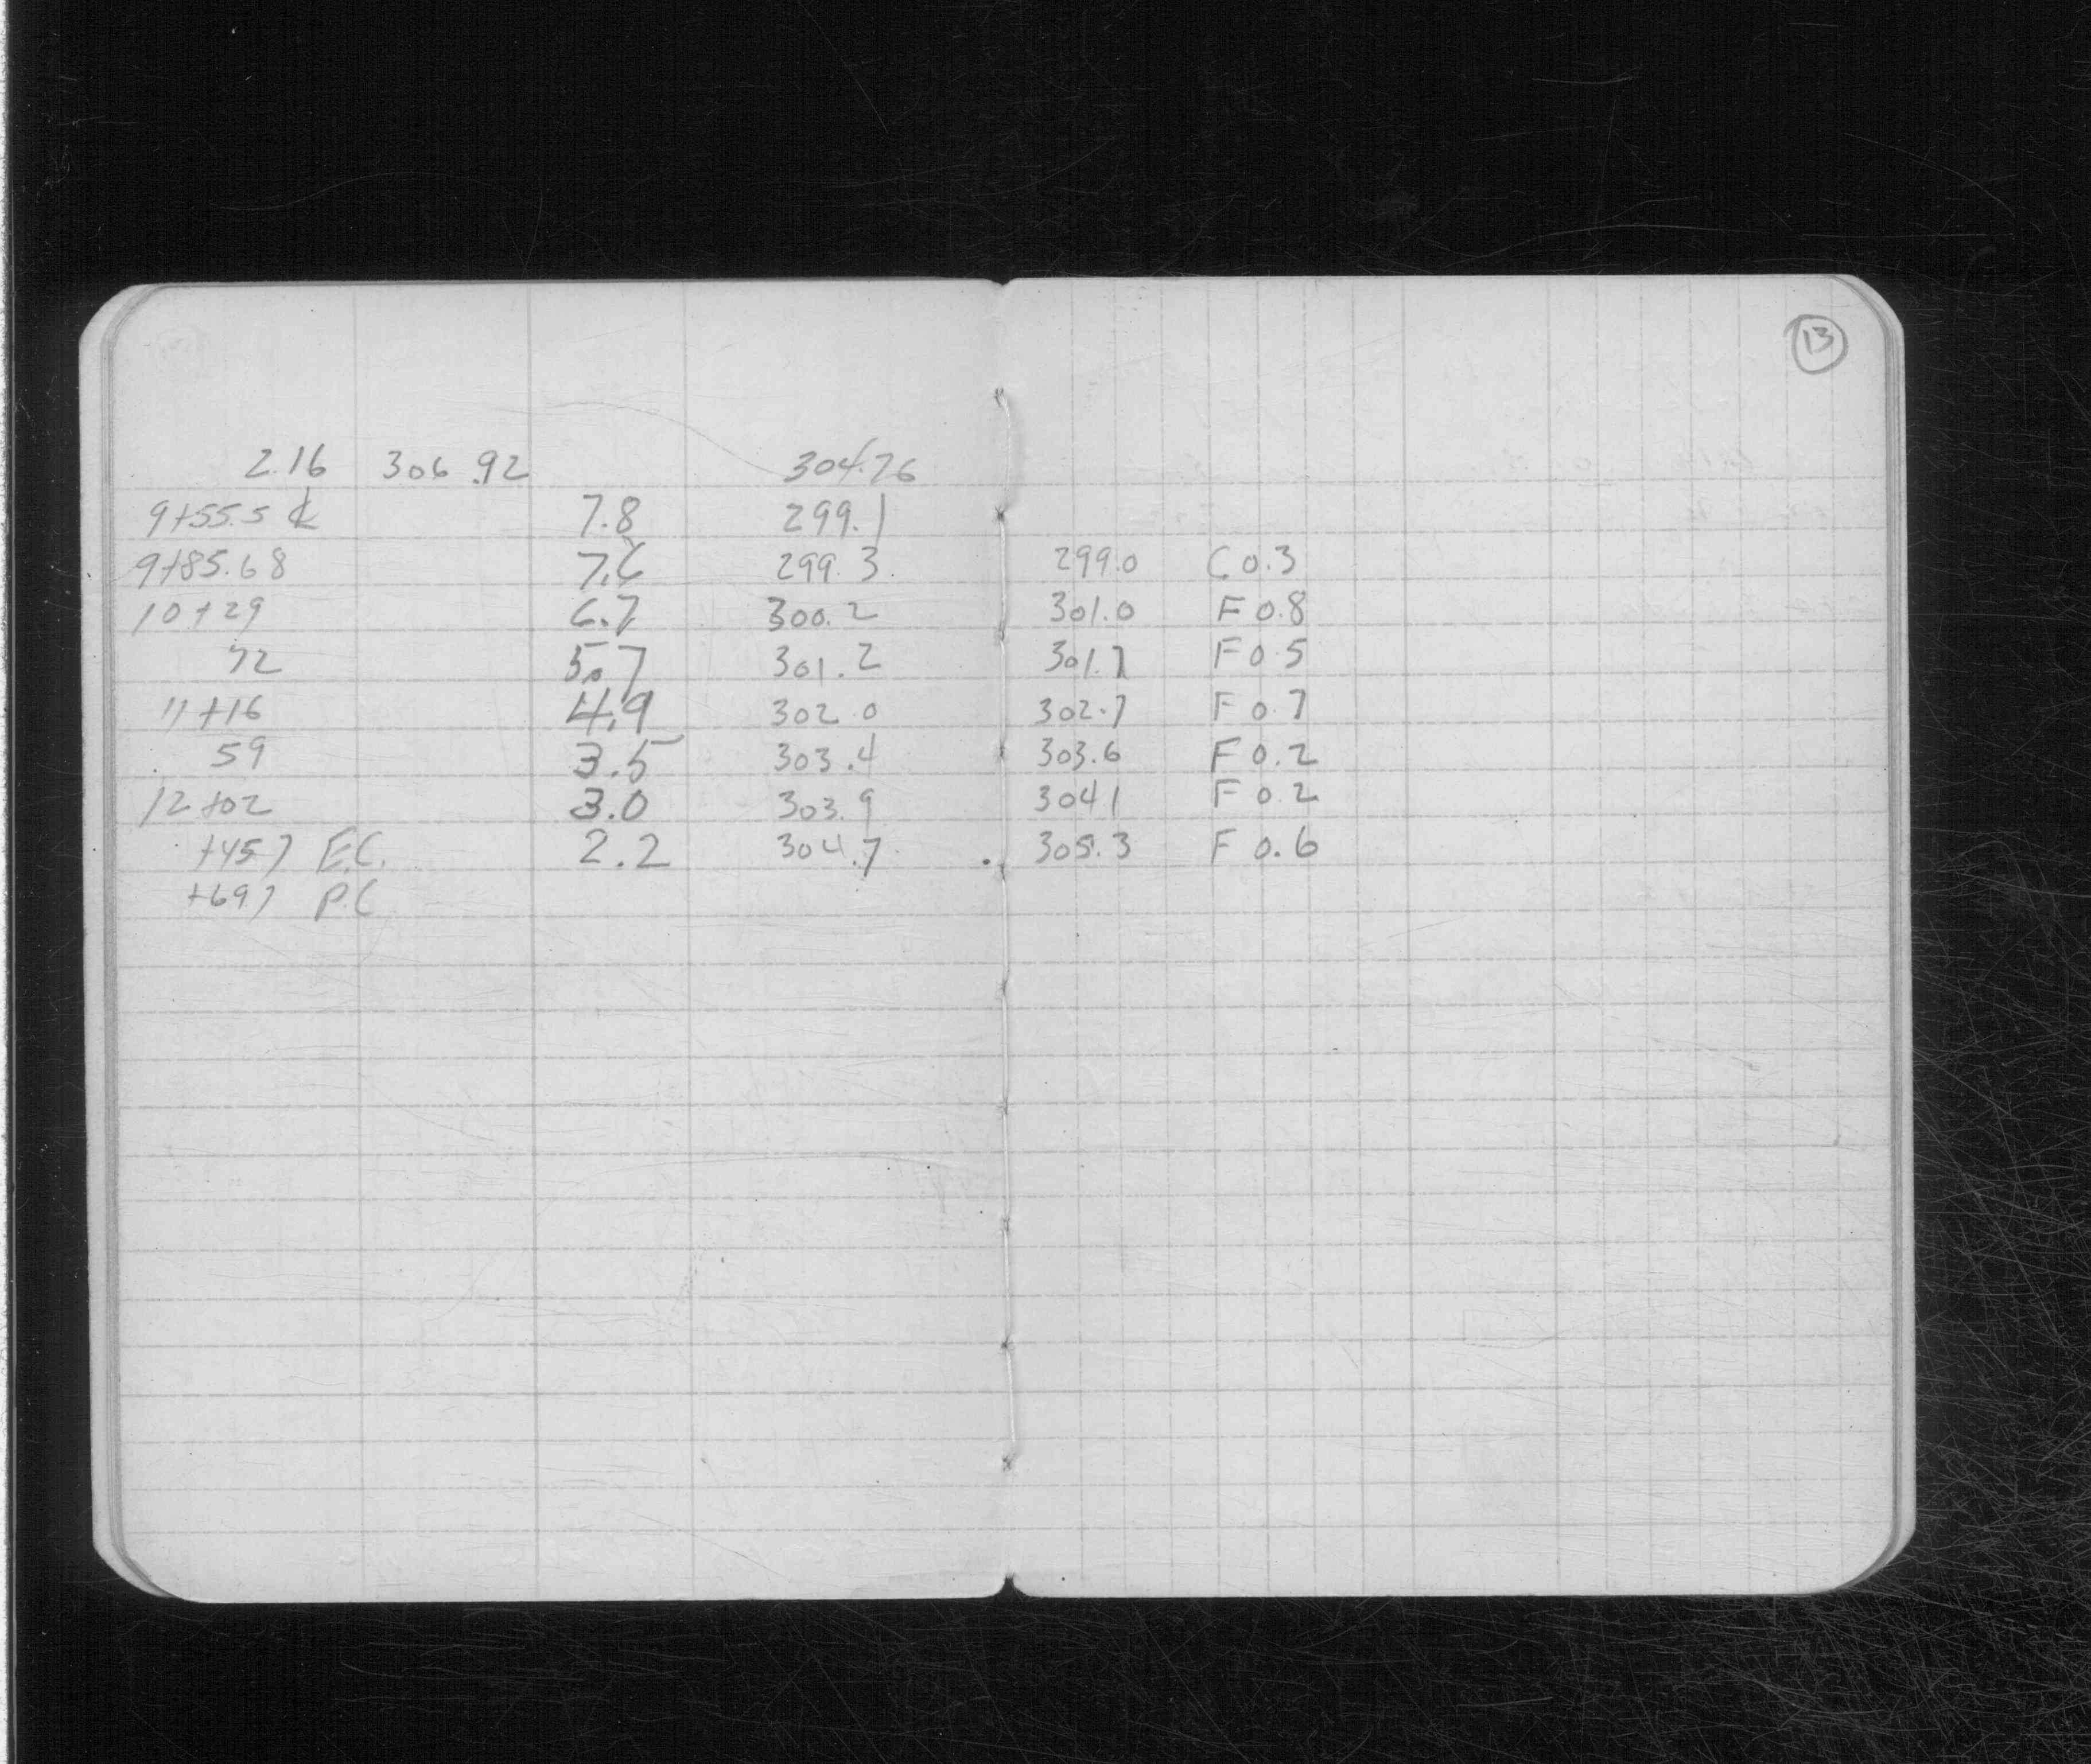 13
2.16 306.92 304.76
9+55.5 ℄ 7.8 299.1
9+85.68 7.6 299.3 299.0 C 0.3
10+29 6.7 300.2 301.0 F 0.8
72 5.7 301.2 301.7 F 0.5
11+16 4.9 302.0 302.7 F 0.7
59 3.5 303.4 303.6 F 0.2
12+02 3.0 303.9 304 1 F 0.2
+457 E.C. 2.2 304.7 305.3 F 0.6
+697 P.C